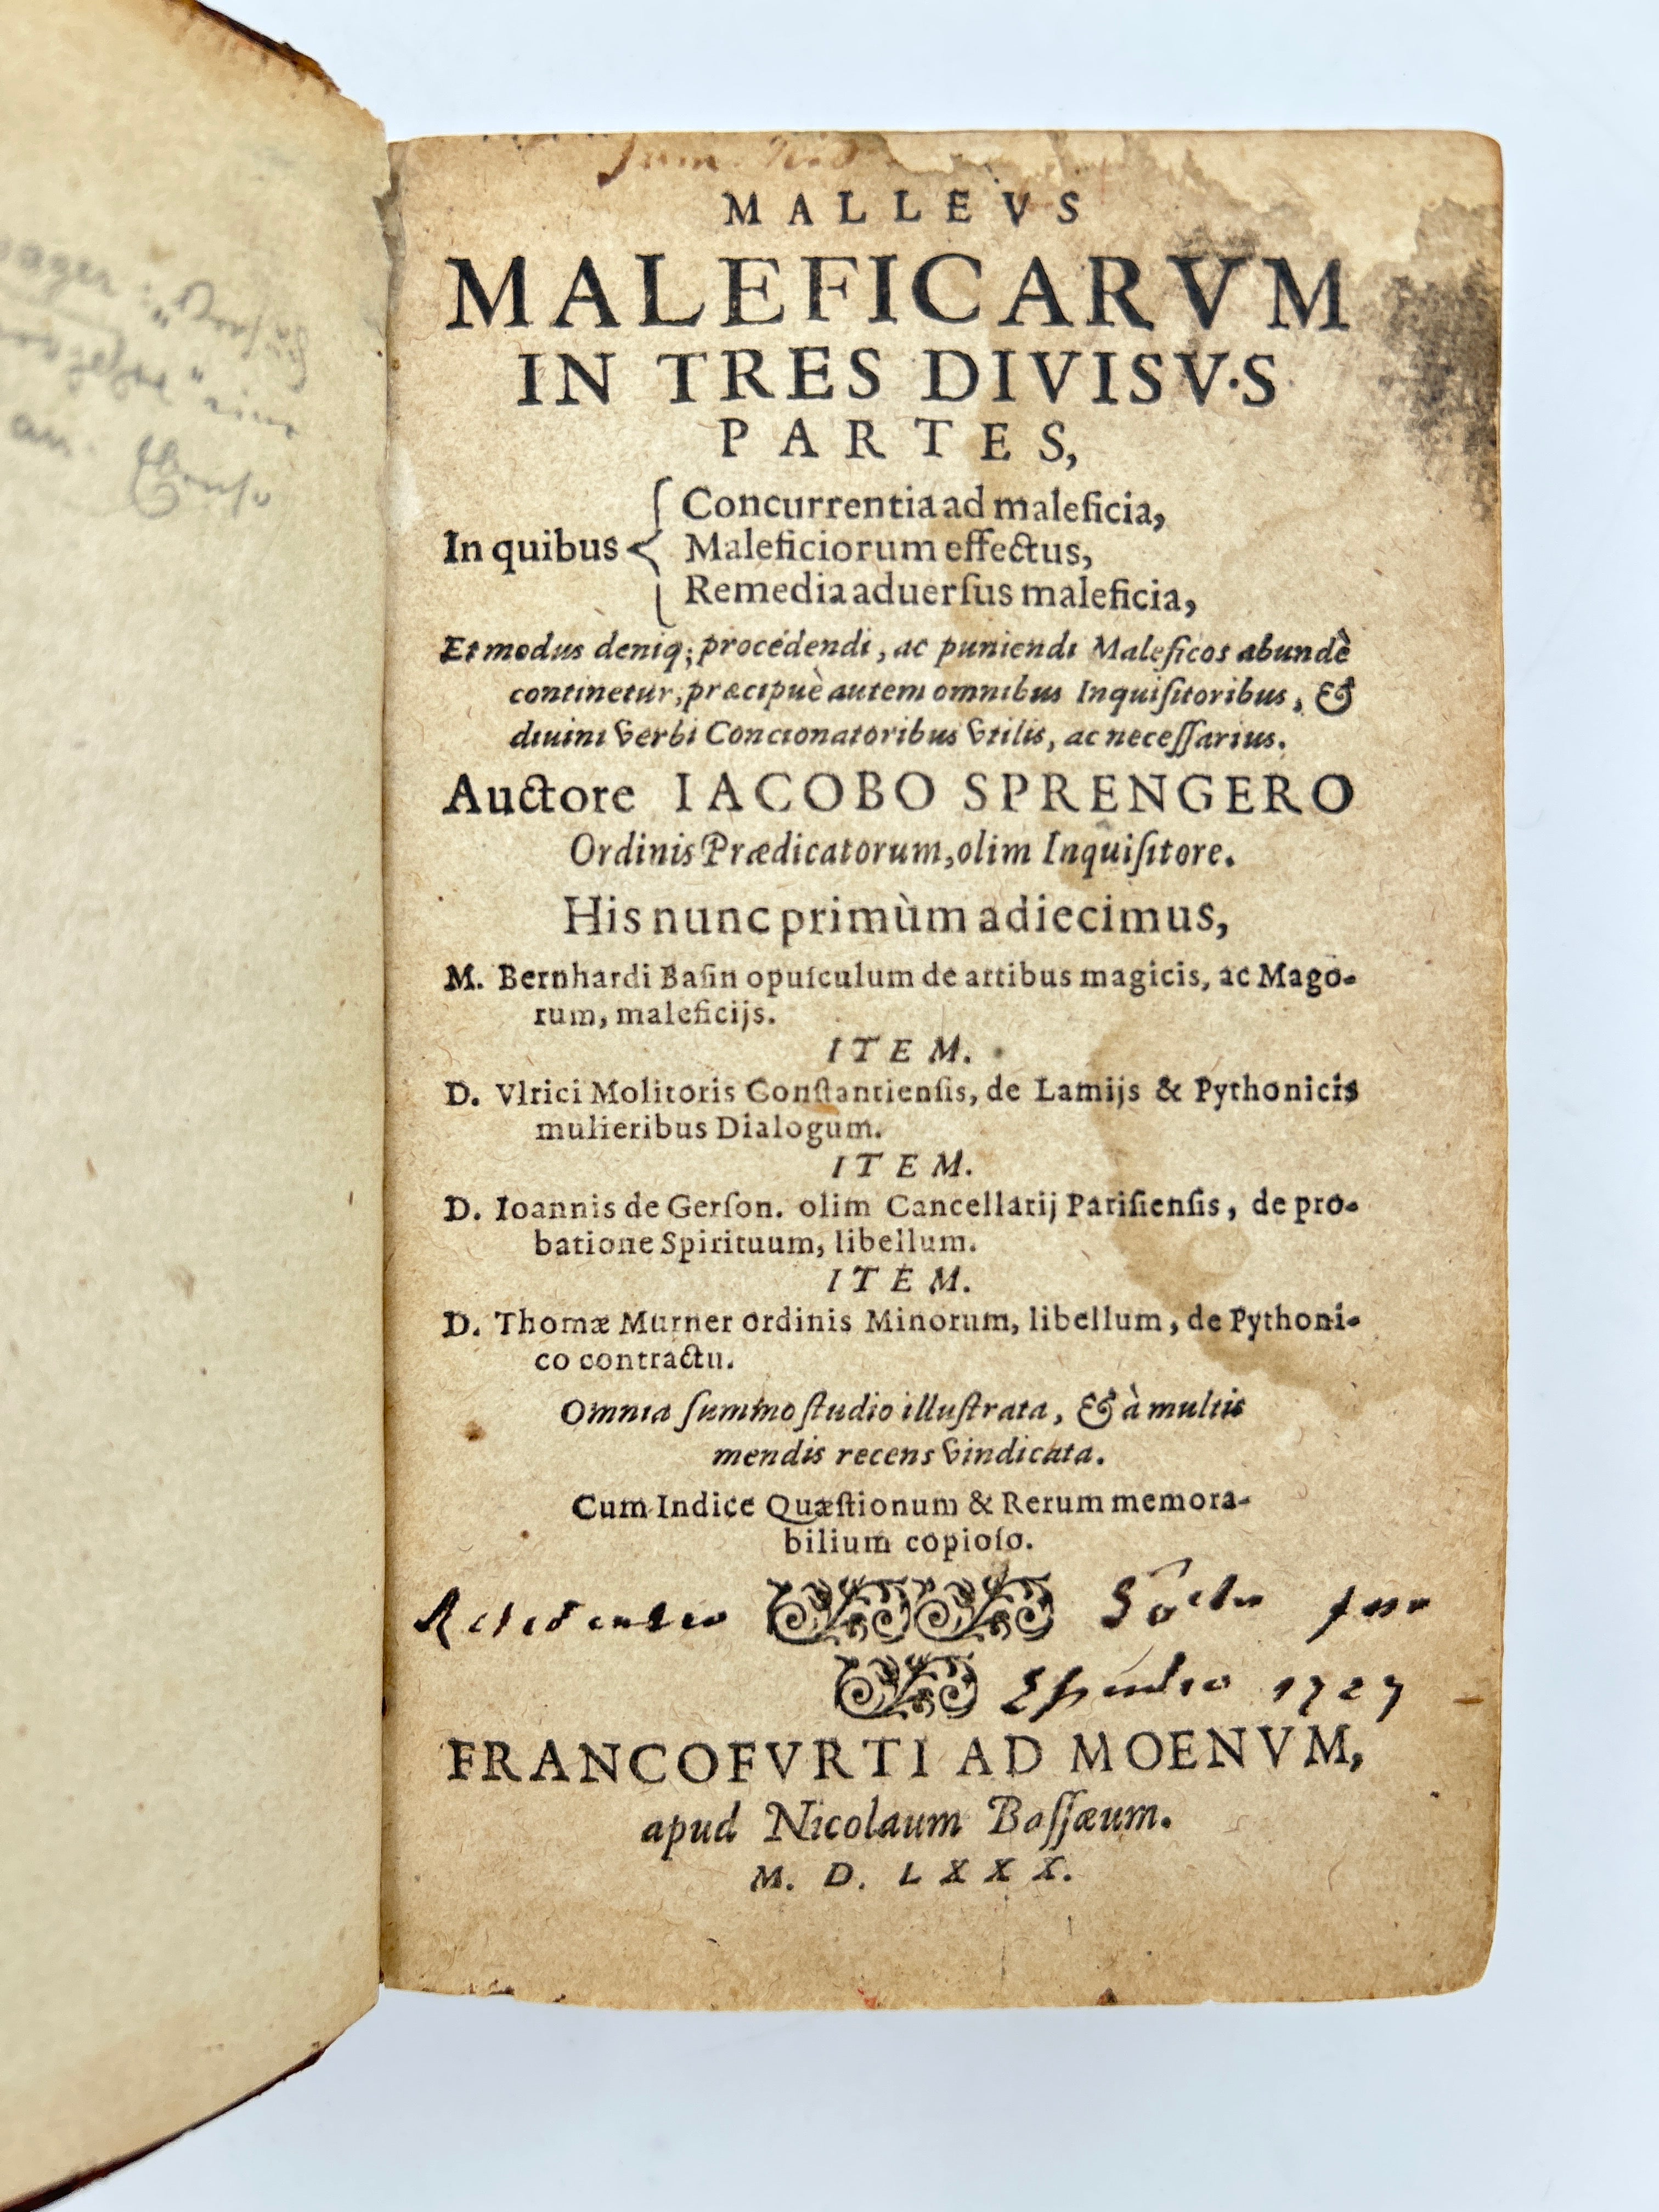 MALLEVS
MALEFICARVM
IN TRES DIVISV·S
PARTES,
Concurrentia ad maleficia,
In quibus Maleficiorum effectus,
Remedia aduerſus maleficia,
Et modus deniq; procedendi, ac puniendi Maleficos abundè
continetur, præcipuè autem omnibus Inquiſitoribus, &
diuini verbi Concionatoribus vtilis, ac neceſſarius.
Auctore IACOBO SPRENGERO
Ordinis Prædicatorum, olim Inquiſitore.
His nunc primùm adiecimus,
M. Bernhardi Baſin opuſculum de artibus magicis, ac Mago-
rum, maleficijs.
ITEM.
D. Vlrici Molitoris Conſtantienſis, de Lamijs & Pythonicis
mulieribus Dialogum.
ITEM.
D. Ioannis de Gerſon. olim Cancellarij Pariſienſis, de pro-
batione Spirituum, libellum.
ITEM.
D. Thomæ Murner ordinis Minorum, libellum, de Pythoni-
co contractu.
Omnia ſummo ſtudio illuſtrata, & à multis
mendis recens vindicata.
Cum Indice Quæſtionum & Rerum memora-
bilium copioſo.
1727
FRANCOFVRTI AD MOENVM,
apud Nicolaum Baſſæum.
M. D. LXXX.